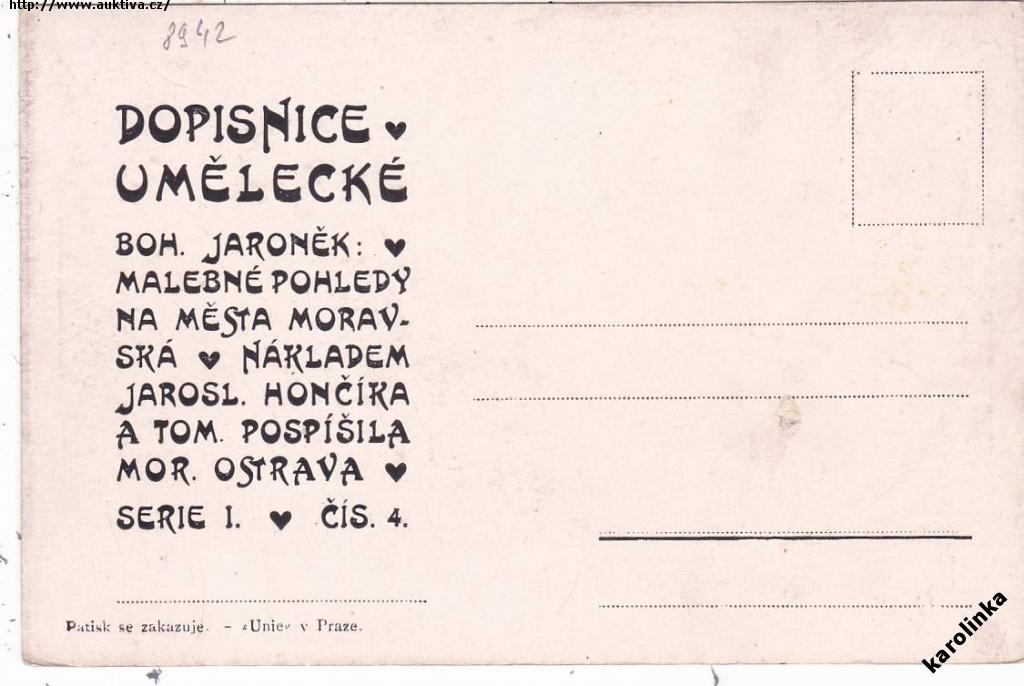 http://www.auktiva.cz/
8942
DOPISNICE ♥
UMĚLECKÉ
BOH. JARONĚK: ♥
MALEBNÉ POHLEDY
NA MĚSTA MORAV-
SKÁ ♥ NÁKLADEM
JAROSL. HONČÍKA
A TOM. POSPÍŠILA
MOR. OSTRAVA ♥
SERIE I. ♥ ČÍS. 4.
Patisk se zakazuje. – »Unie« v Praze.
karolinka